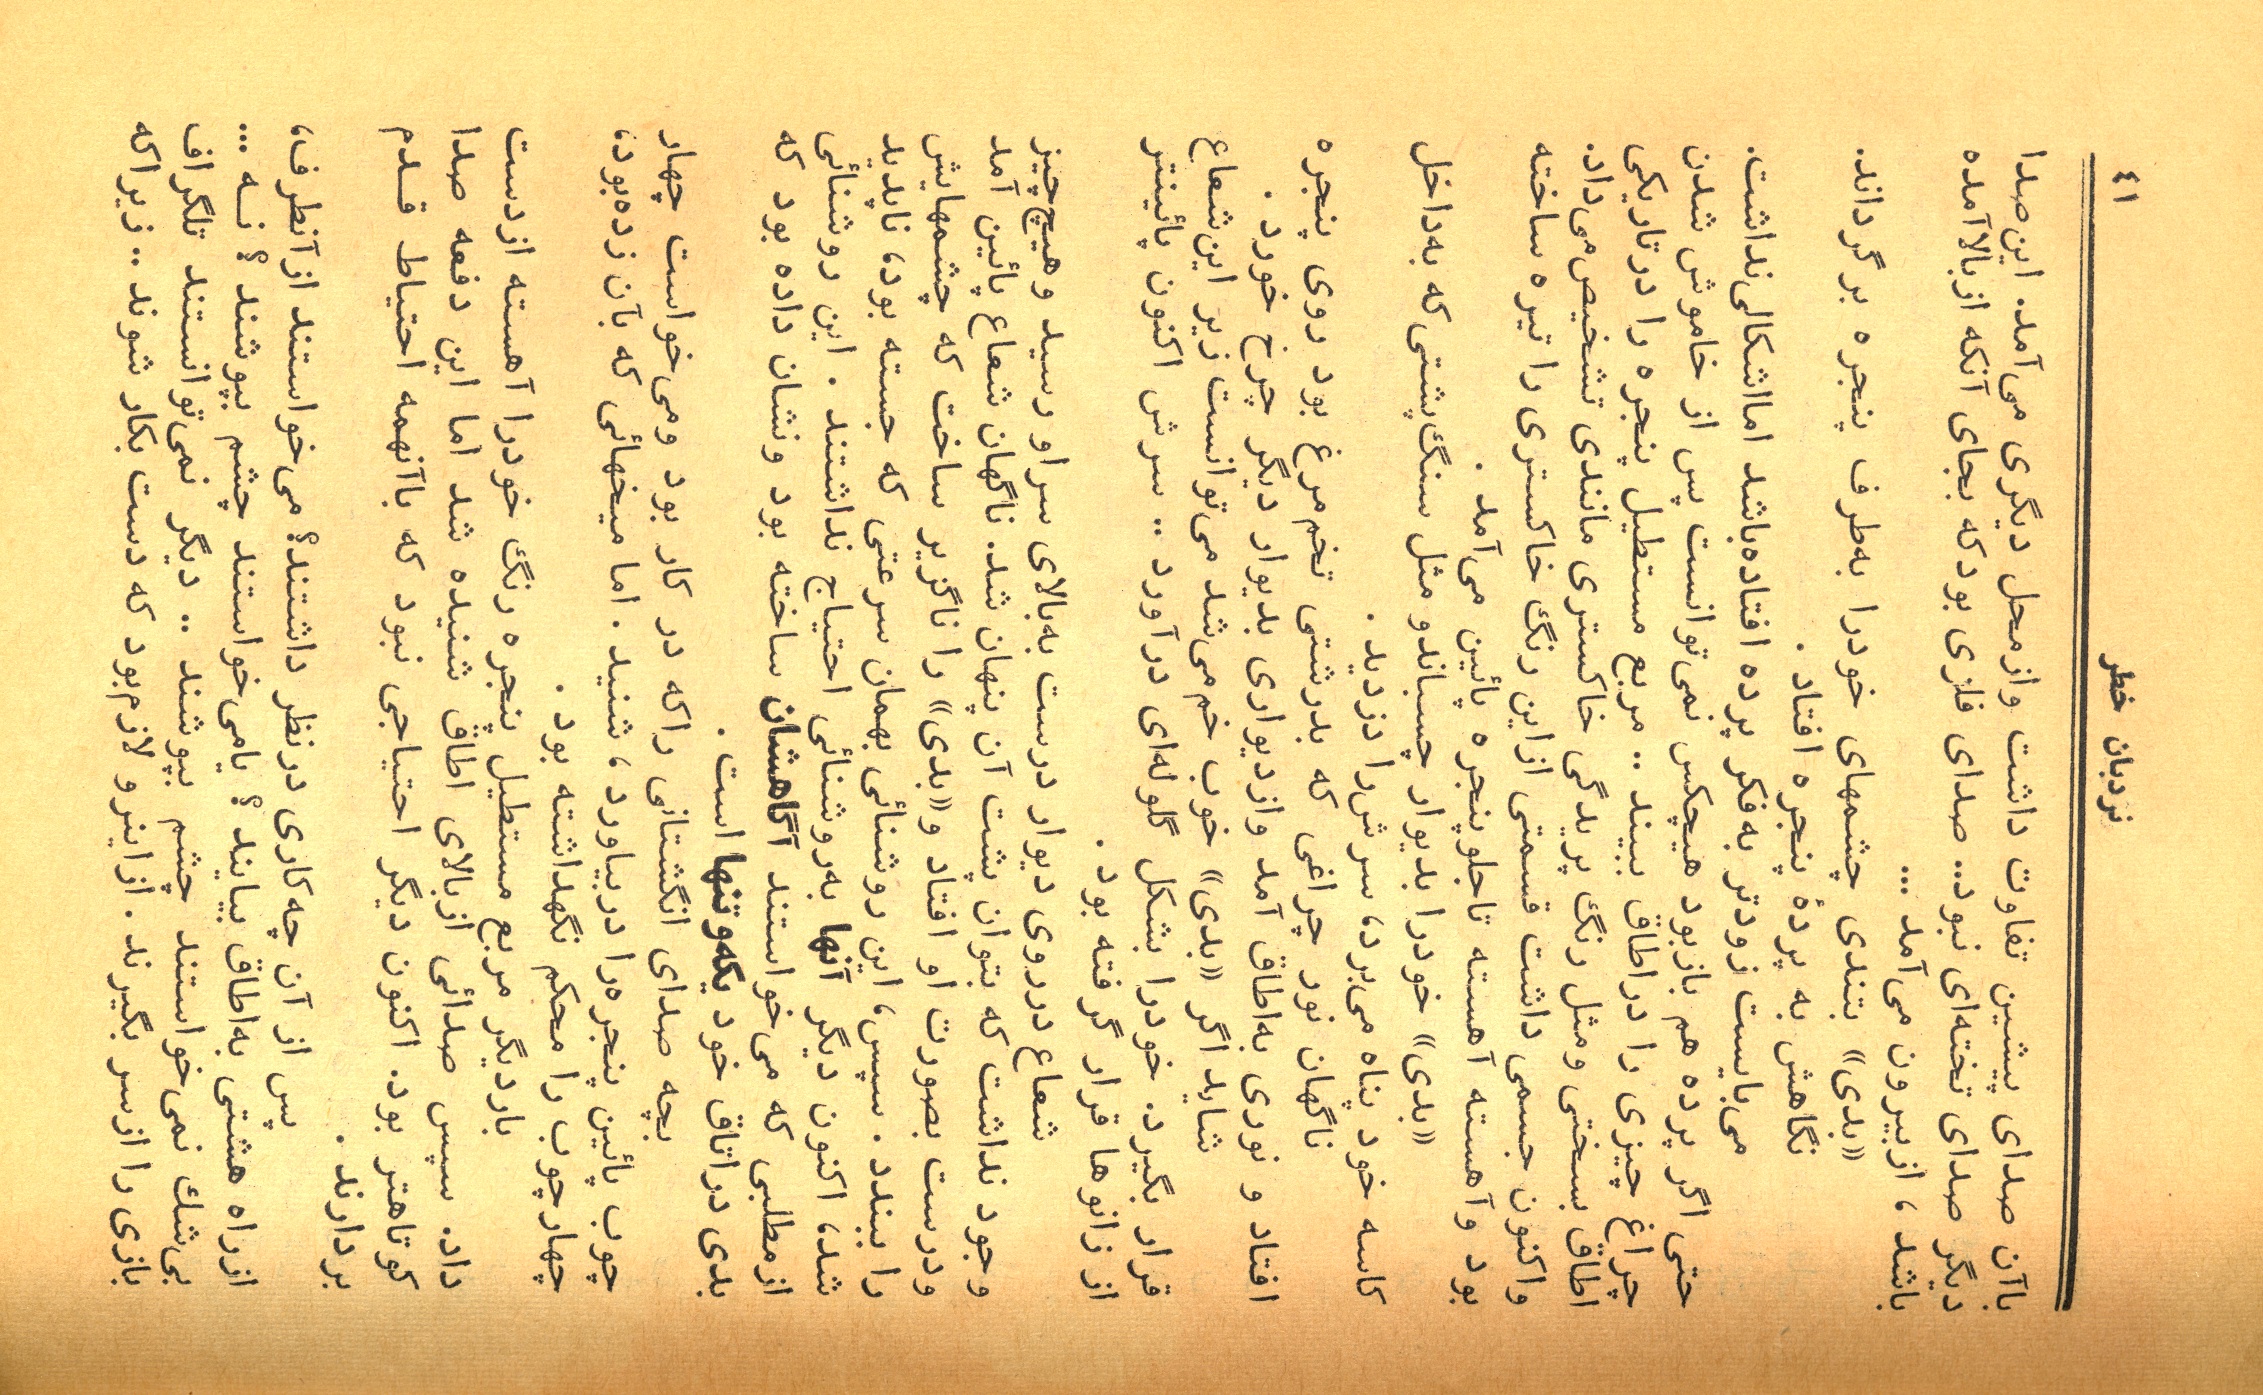 ٤١
نردبان خطر
باآن صدای پیشین تفاوت داشت وازمحل دیگری می‌آمد. این‌صدا
دیگر صدای تخته‌ای نبود.. صدای فلزی بودکه بجای آنکه ازبالاآمده
باشد، ازبیرون می‌آمد ...
«بدی» بتندی چشمهای خودرا به‌طرف پنجره برگرداند.
نگاهش به پردهٔ پنجره افتاد .
می‌بایست زودتر به‌فکر پرده افتاده‌باشد امااشکالی‌نداشت.
حتی اگر پرده هم بازبود هیچکس نمی‌توانست پس از خاموش شدن
چراغ چیزی را دراطاق ببیند .. مربع مستطیل پنجره را درتاریکی
اطاق بسختی ومثل رنگ پریدگی خاکستری مانندی تشخیص‌می‌داد.
واکنون جسمی داشت قسمتی ازاین رنگ خاکستری را تیره ساخته
بود وآهسته آهسته تاجلوپنجره پائین می‌آمد .
«بدی» خودرا بدیوار چسباندو مثل سنگ‌پشتی‌که به‌داخل
کاسه خود پناه می‌برد، سرش‌را دزدید .
ناگهان نور چراغی که بدرشتی تخم‌مرغ بود روی پنجره
افتاد و نوری به‌اطاق آمد وازدیواری بدیوار دیگر چرخ خورد .
شاید اگر «بدی» خوب خم‌می‌شد می‌توانست زیر این‌شعاع
قرار بگیرد. خودرا بشکل گلوله‌ای درآورد .. سرش اکنون پائینتر
از زانوها قرار گرفته بود .
شعاع درروی دیوار درست به‌بالای سراو رسید وهیچ‌چیز
وجود نداشت که بتوان پشت آن پنهان شد. ناگهان شعاع پائین آمد
ودرست بصورت او افتاد و«بدی» را ناگزیر ساخت که چشمهایش
را ببندد . سپس، این روشنائی بهمان سرعتی که جسته بود، ناپدید
شد، اکنون دیگر آنها به‌روشنائی احتیاج نداشتند . این روشنائی
ازمطلبی که می‌خواستند آگاهشان ساخته بود ونشان داده بود که
بدی دراتاق خود یکه‌وتنها است .
بچه صدای انگشتانی راکه در کار بود ومی‌خواست چهار
چوب پائین پنجره‌را دربیاورد، شنید . اما میخهائی که بآن زده‌بود،
چهارچوب را محکم نگهداشته بود .
باردیگر مربع مستطیل پنجره رنگ خودرا آهسته ازدست
داد. سپس صدائی ازبالای اطاق شنیده شد اما این دفعه صدا
کوتاهتر بود. اکنون دیگر احتیاجی نبود که باآنهمه احتیاط قدم
بردارند .
پس از آن چه‌کاری درنظر داشتند؟ می‌خواستند ازآنطرف،
ازراه هشتی به‌اطاق بیایند ؟ یامی‌خواستند چشم بپوشند ؟ نه ...
بی‌شك نمی‌خواستند چشم بپوشند .. دیگر نمی‌توانستند تلگراف
بازی را ازسر بگیرند. ازاینرو لازم‌بود که دست بکار شوند .. زیراکه